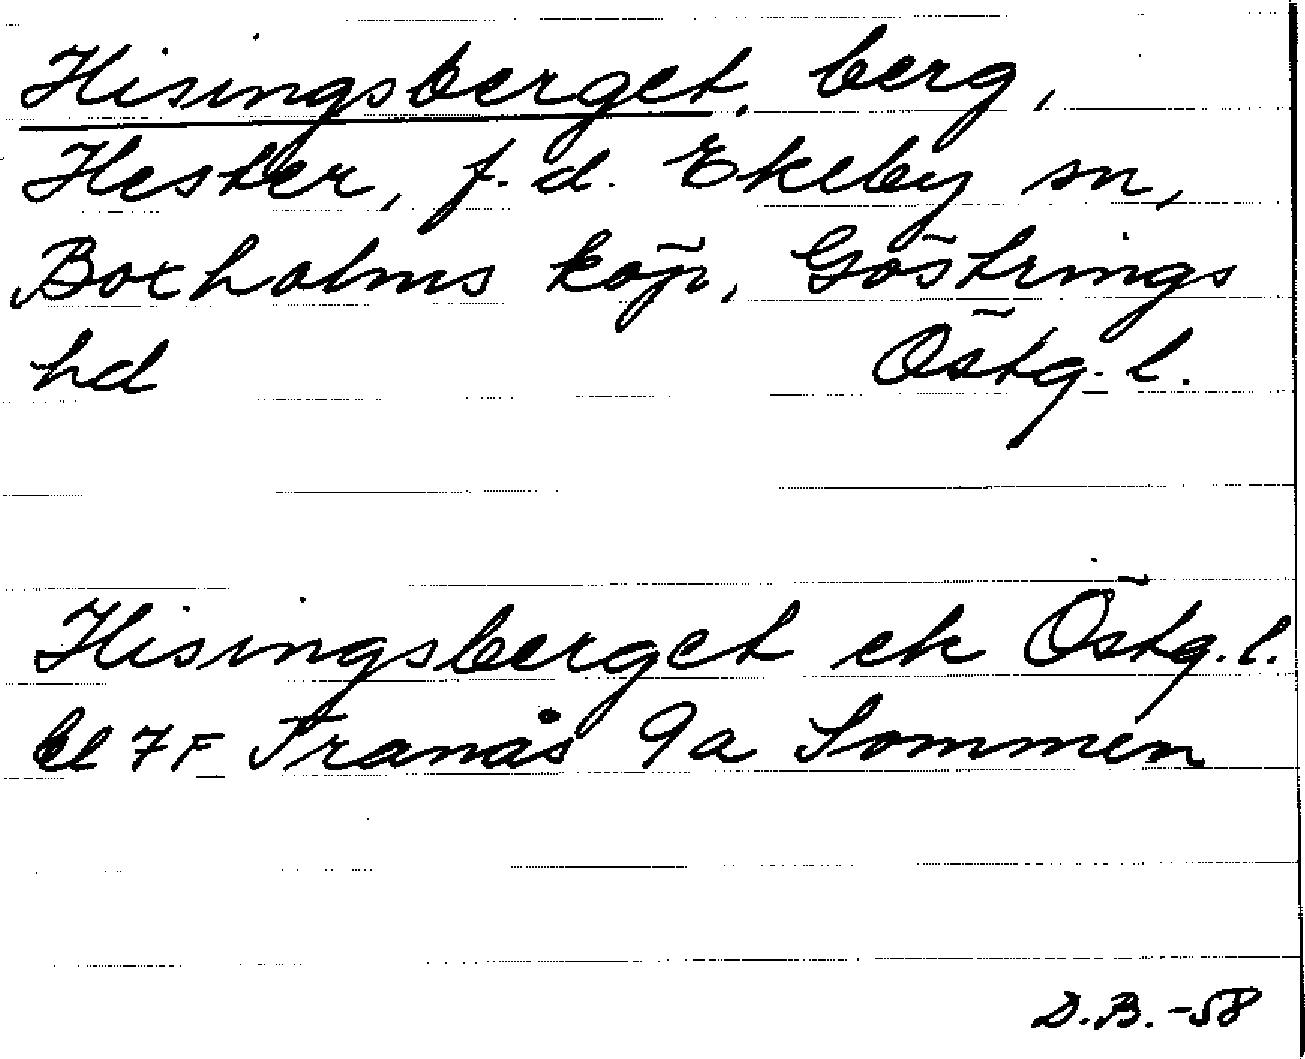 Hisingsberget, berg,
Hester, f.d. Ekeby sn,
Boxholms köp, Göstrings
hd Östg. l.
Hisingsberget ek Östg. l.
bl 7F Tranås 9a Sommen
D.B. -58